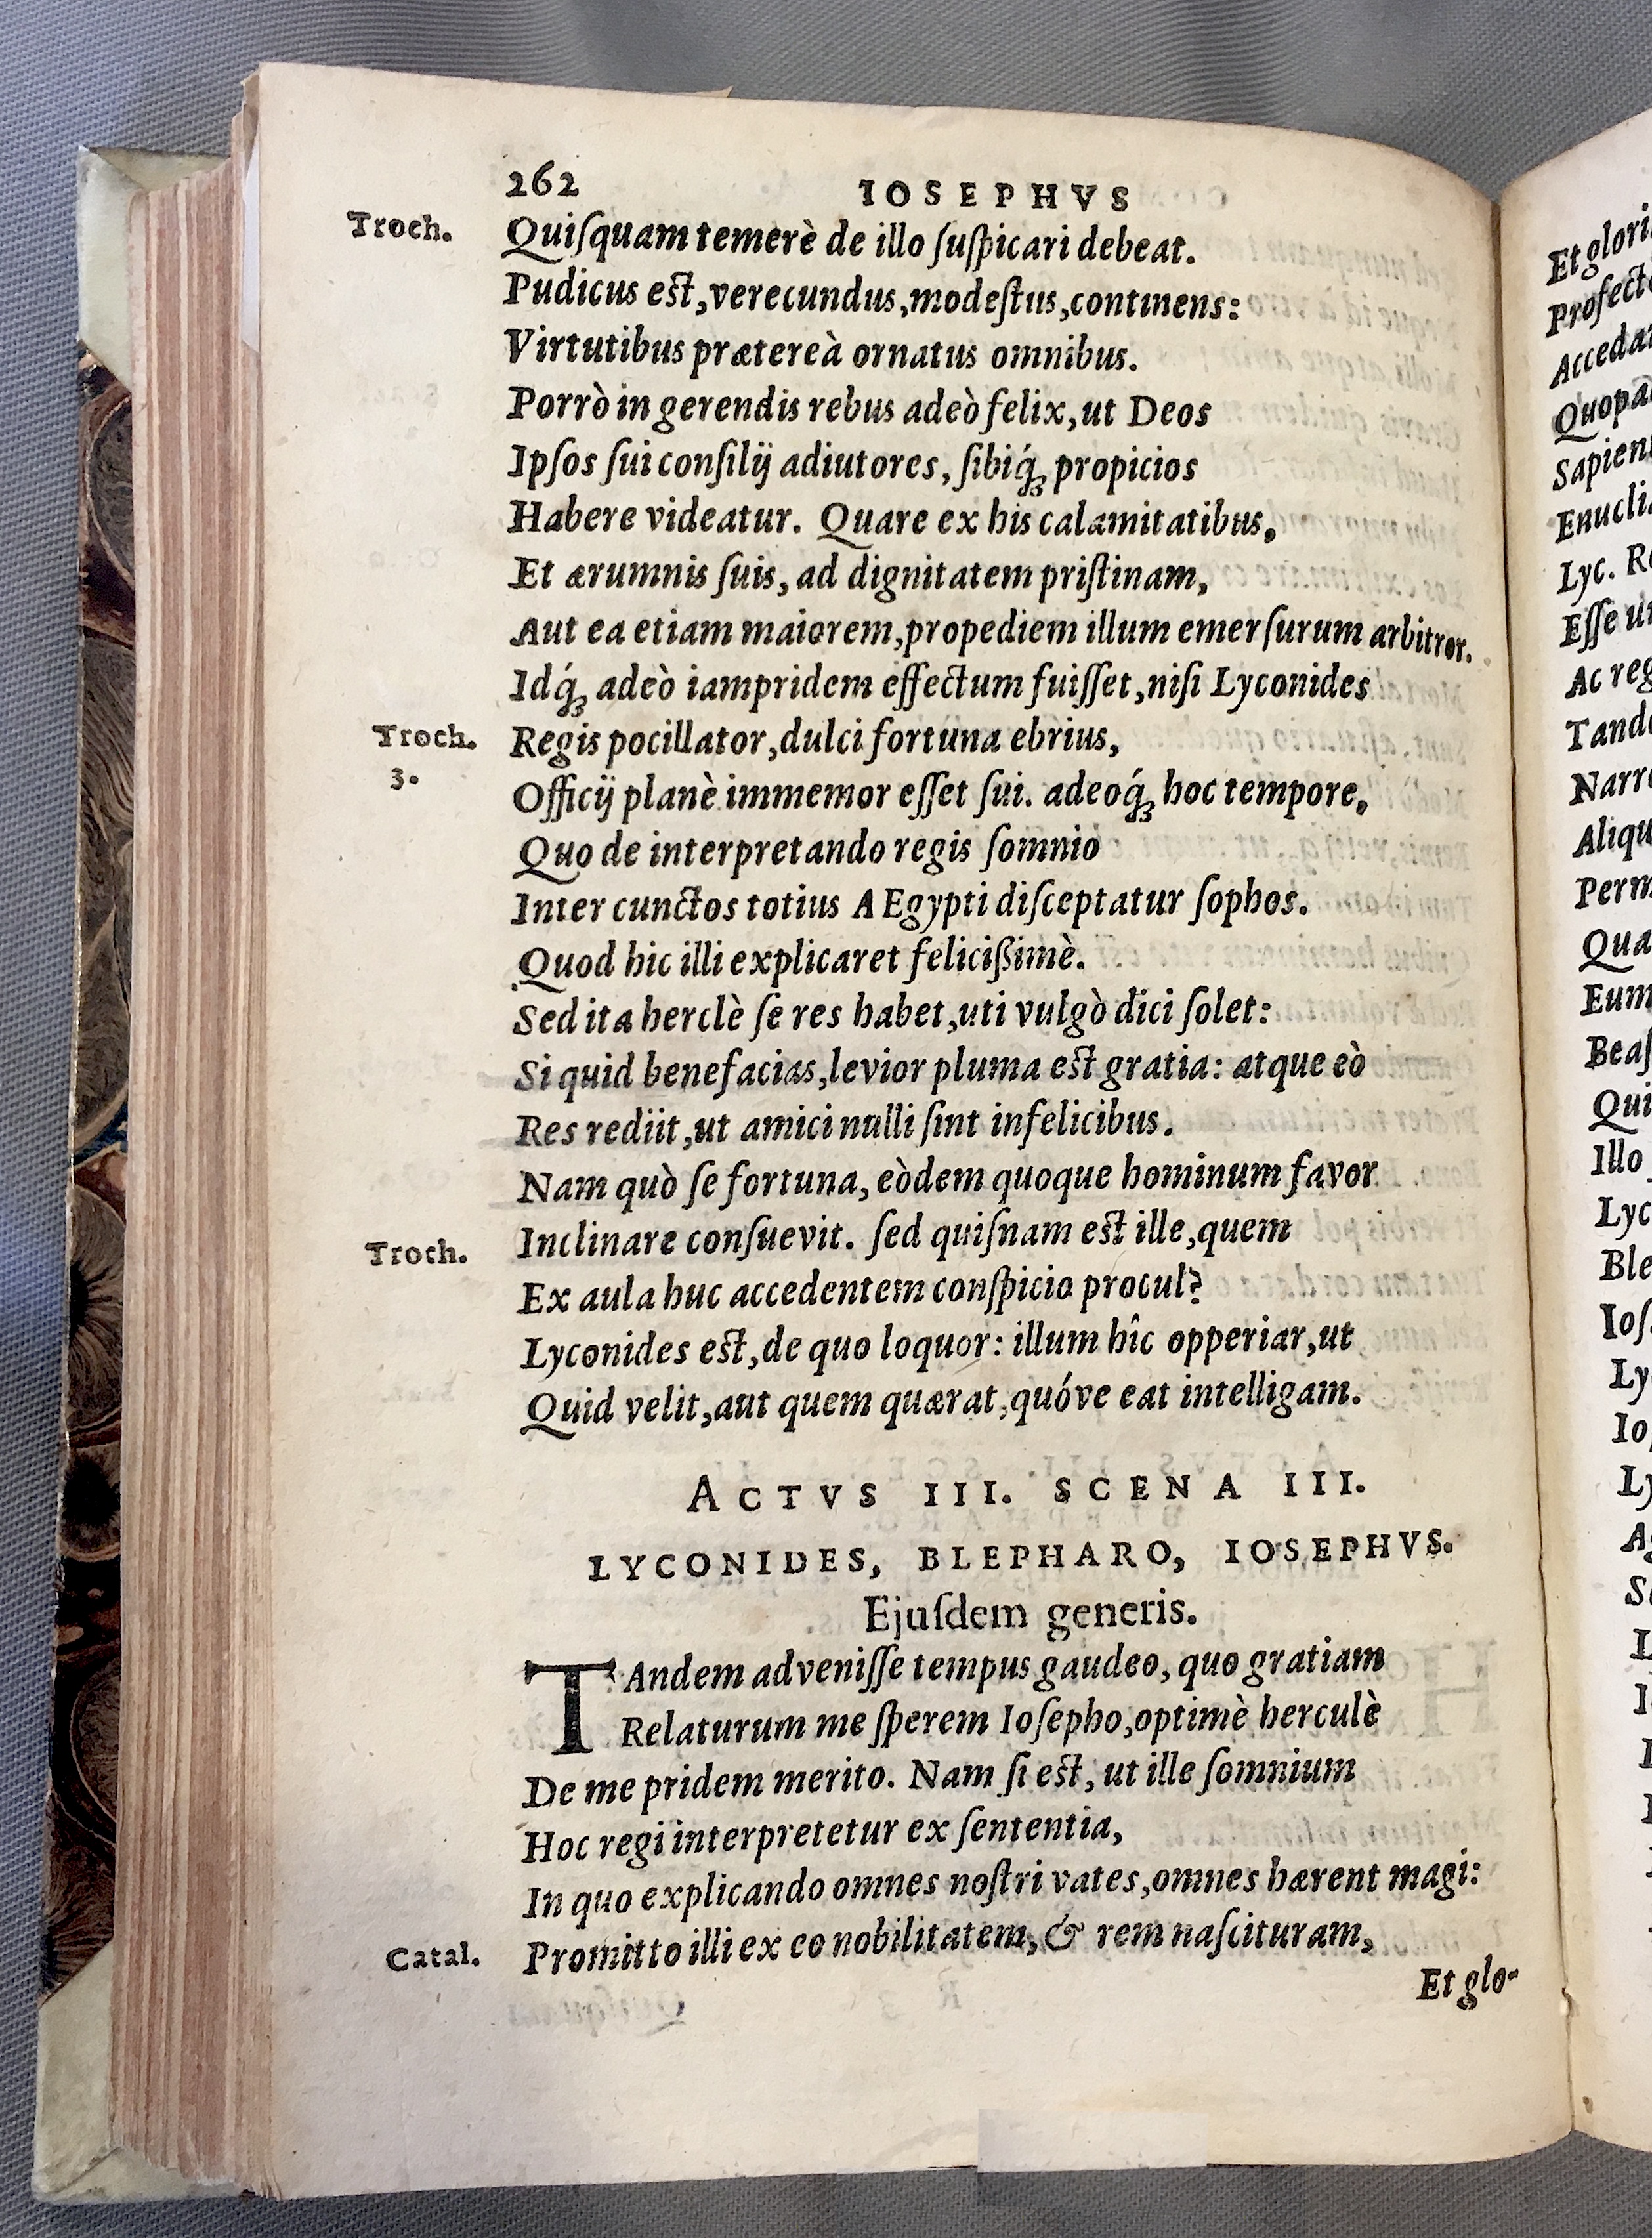 262 IOSEPHVS
Troch. Quiſquam temerè de illo ſuſpicari debeat.
Pudicus eſt, verecundus, modeſtus, continens:
Virtutibus prætereà ornatus omnibus.
Porrò in gerendis rebus adeò felix, ut Deos
Ipſos ſui conſilij adiutores, ſibiq́ꝫ propicios
Habere videatur. Quare ex his calamitatibus,
Et ærumnis ſuis, ad dignitatem priſtinam,
Aut ea etiam maiorem, propediem illum emerſurum arbitror.
Idq́ꝫ adeò iampridem effectum fuiſſet, niſi Lyconides
Troch. Regis pocillator, dulci fortuna ebrius,
3. Officij planè immemor eſſet ſui. adeoq́ꝫ hoc tempore,
Quo de interpretando regis ſomnio
Inter cunctos totius AEgypti diſceptatur ſophos.
Quod hic illi explicaret feliciſſimè.
Sed ita herclè ſe res habet, uti vulgò dici ſolet:
Si quid benefacias, levior pluma eſt gratia: atque eò
Res rediit, ut amici nulli ſint infelicibus.
Nam quò ſe fortuna, eòdem quoque hominum favor
Troch. Inclinare conſuevit. ſed quiſnam eſt ille, quem
Ex aula huc accedentem conſpicio procul?
Lyconides eſt, de quo loquor: illum hîc opperiar, ut
Quid velit, aut quem quærat, quóve eat intelligam.
ACTVS III. SCENA III.
LYCONIDES, BLEPHARO, IOSEPHVS.
Ejuſdem generis.
TAndem adveniſſe tempus gaudeo, quo gratiam
Relaturum me ſperem Ioſepho, optimè herculè
De me pridem merito. Nam ſi eſt, ut ille ſomnium
Hoc regi interpretetur ex ſententia,
In quo explicando omnes noſtri vates, omnes hærent magi:
Catal. Promitto illi ex eo nobilitatem, & rem naſcituram,
Et glo-
Et gloria
Lyc.
Eſſe
Ac reg
Quopa
Sapien
Illo
Lyc
Ble
Ioſ
Ly
Io